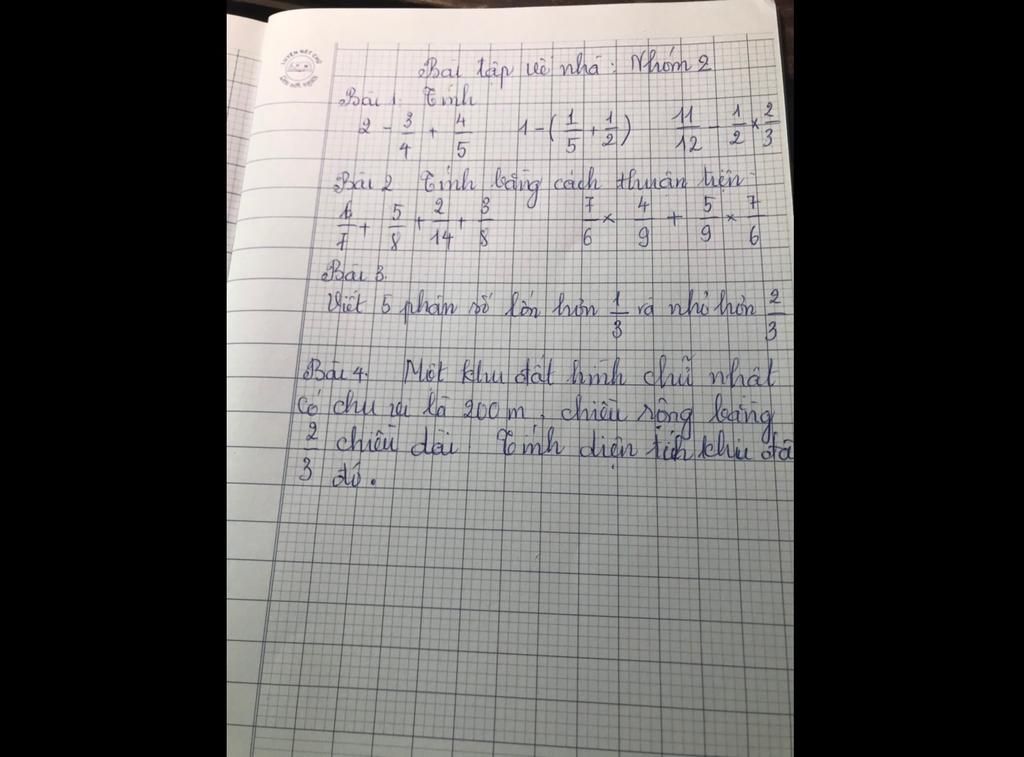 Bài tập về nhà: Nhóm 2
Bài 1. Tính
2 - 3/4 + 4/5    1 - (1/5 + 1/2)    11/12 - 1/2 × 2/3
Bài 2 Tính bằng cách thuận tiện
6/7 + 5/8 + 2/14 + 3/8    7/6 × 4/9 + 5/9 × 7/6
Bài 3.
Viết 5 phân số lớn hơn 1/3 và nhỏ hơn 2/3
Bài 4. Một khu đất hình chữ nhật
có chu vi là 200 m, chiều rộng bằng
2/3 chiều dài Tính diện tích khu đấ
đó.